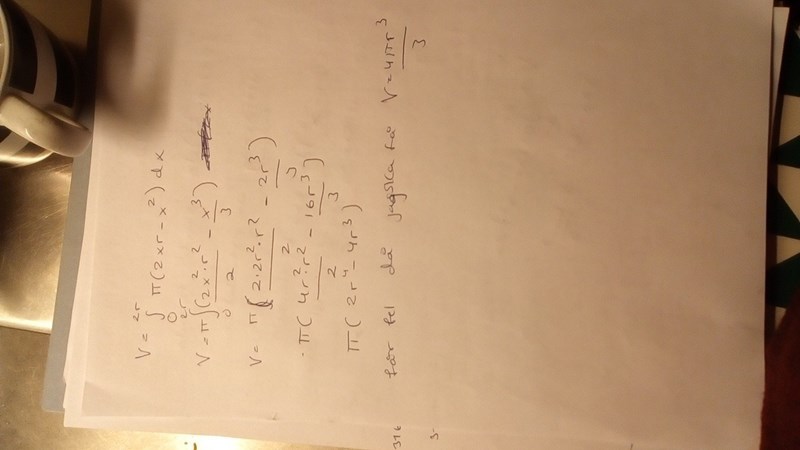 V = ∫₀²ʳ π(2xr - x²) dx
V = π∫₀²ʳ (2x²·r²/2 - x³/3)
V = π(2·2r²·r²/2 - 2r³/3)
·π(4r²·r²/2 - 16r³/3)
π(2r⁴ - 4r³)
får fel då jag ska få V = 4πr³/3
316
3-